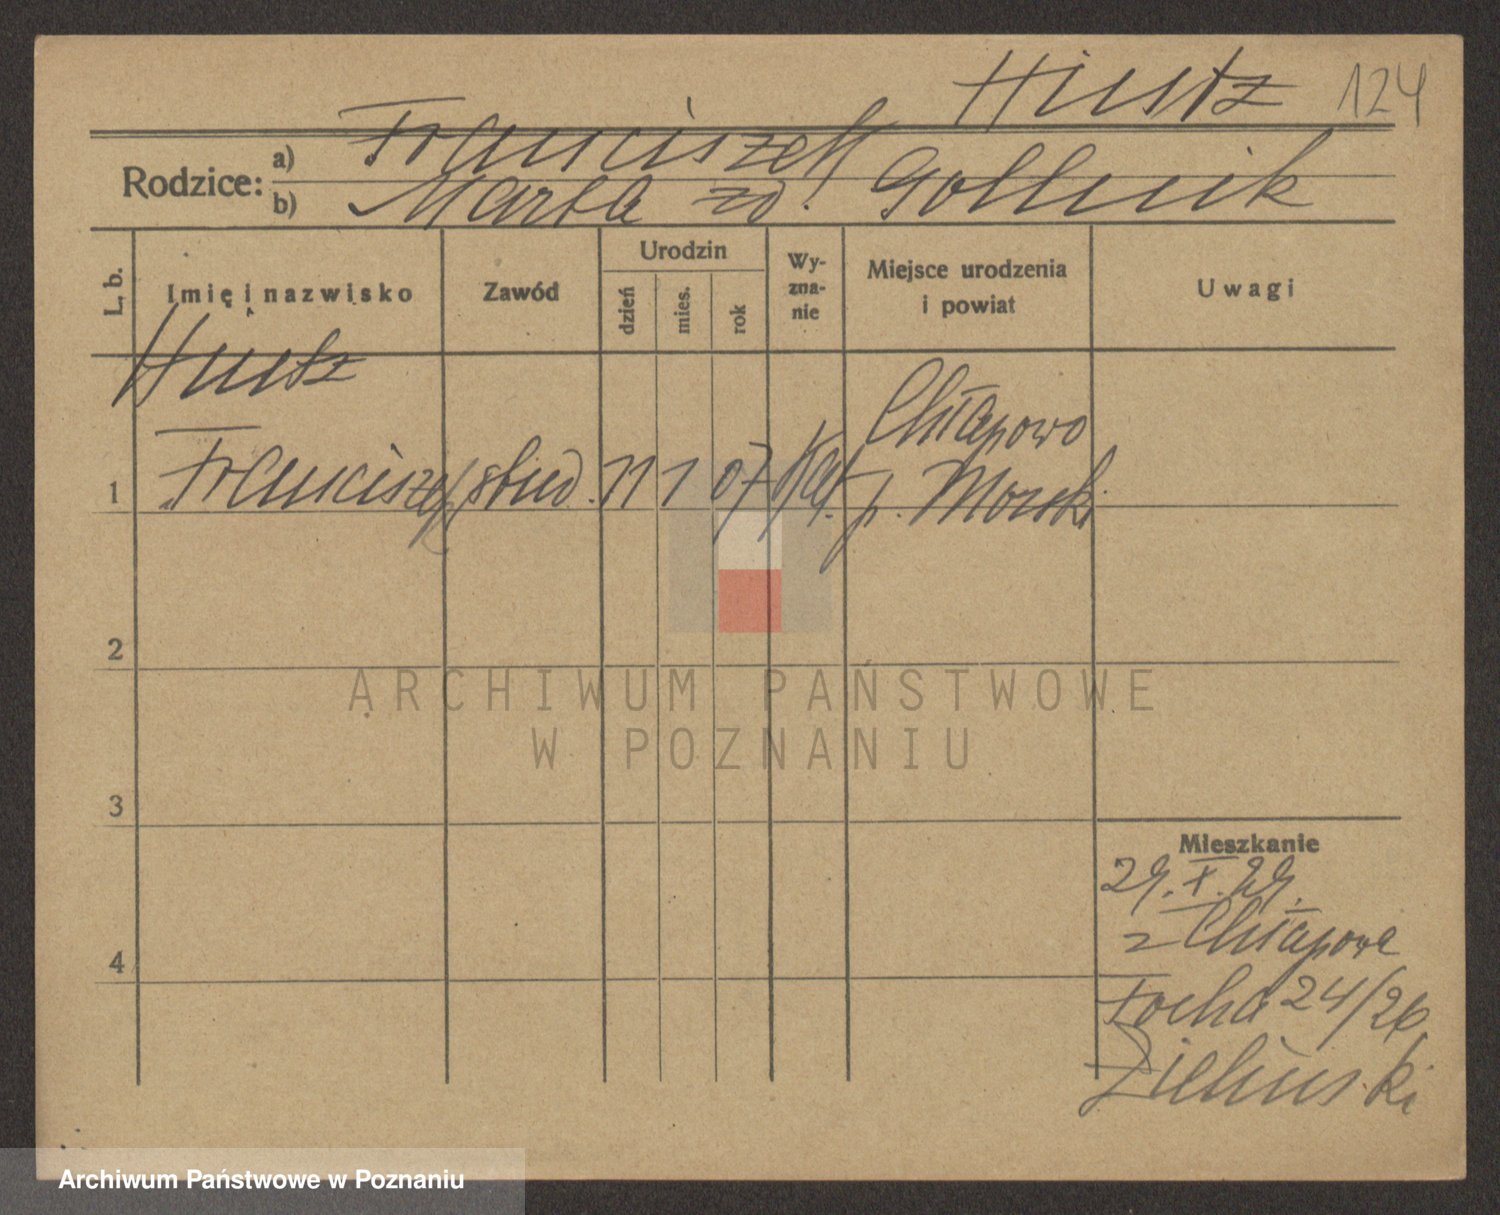 Hintz 124
Rodzice:
a) Franciszek
b) Marta zd. Gollnik
L. b.
Imię i nazwisko
Zawód
Urodzin
dzień
mies.
rok
Wy-
zna-
nie
Miejsce urodzenia
i powiat
Uwagi
Hintz
1 Franciszek stud. 11 1 07 Kat. Chłapowo
p. Morski
2
3
4
ARCHIWUM PAŃSTWOWE
W POZNANIU
Mieszkanie
29. X. 29.
z Chłapowa
Focha 24/26
Zieliński
Archiwum Państwowe w Poznaniu